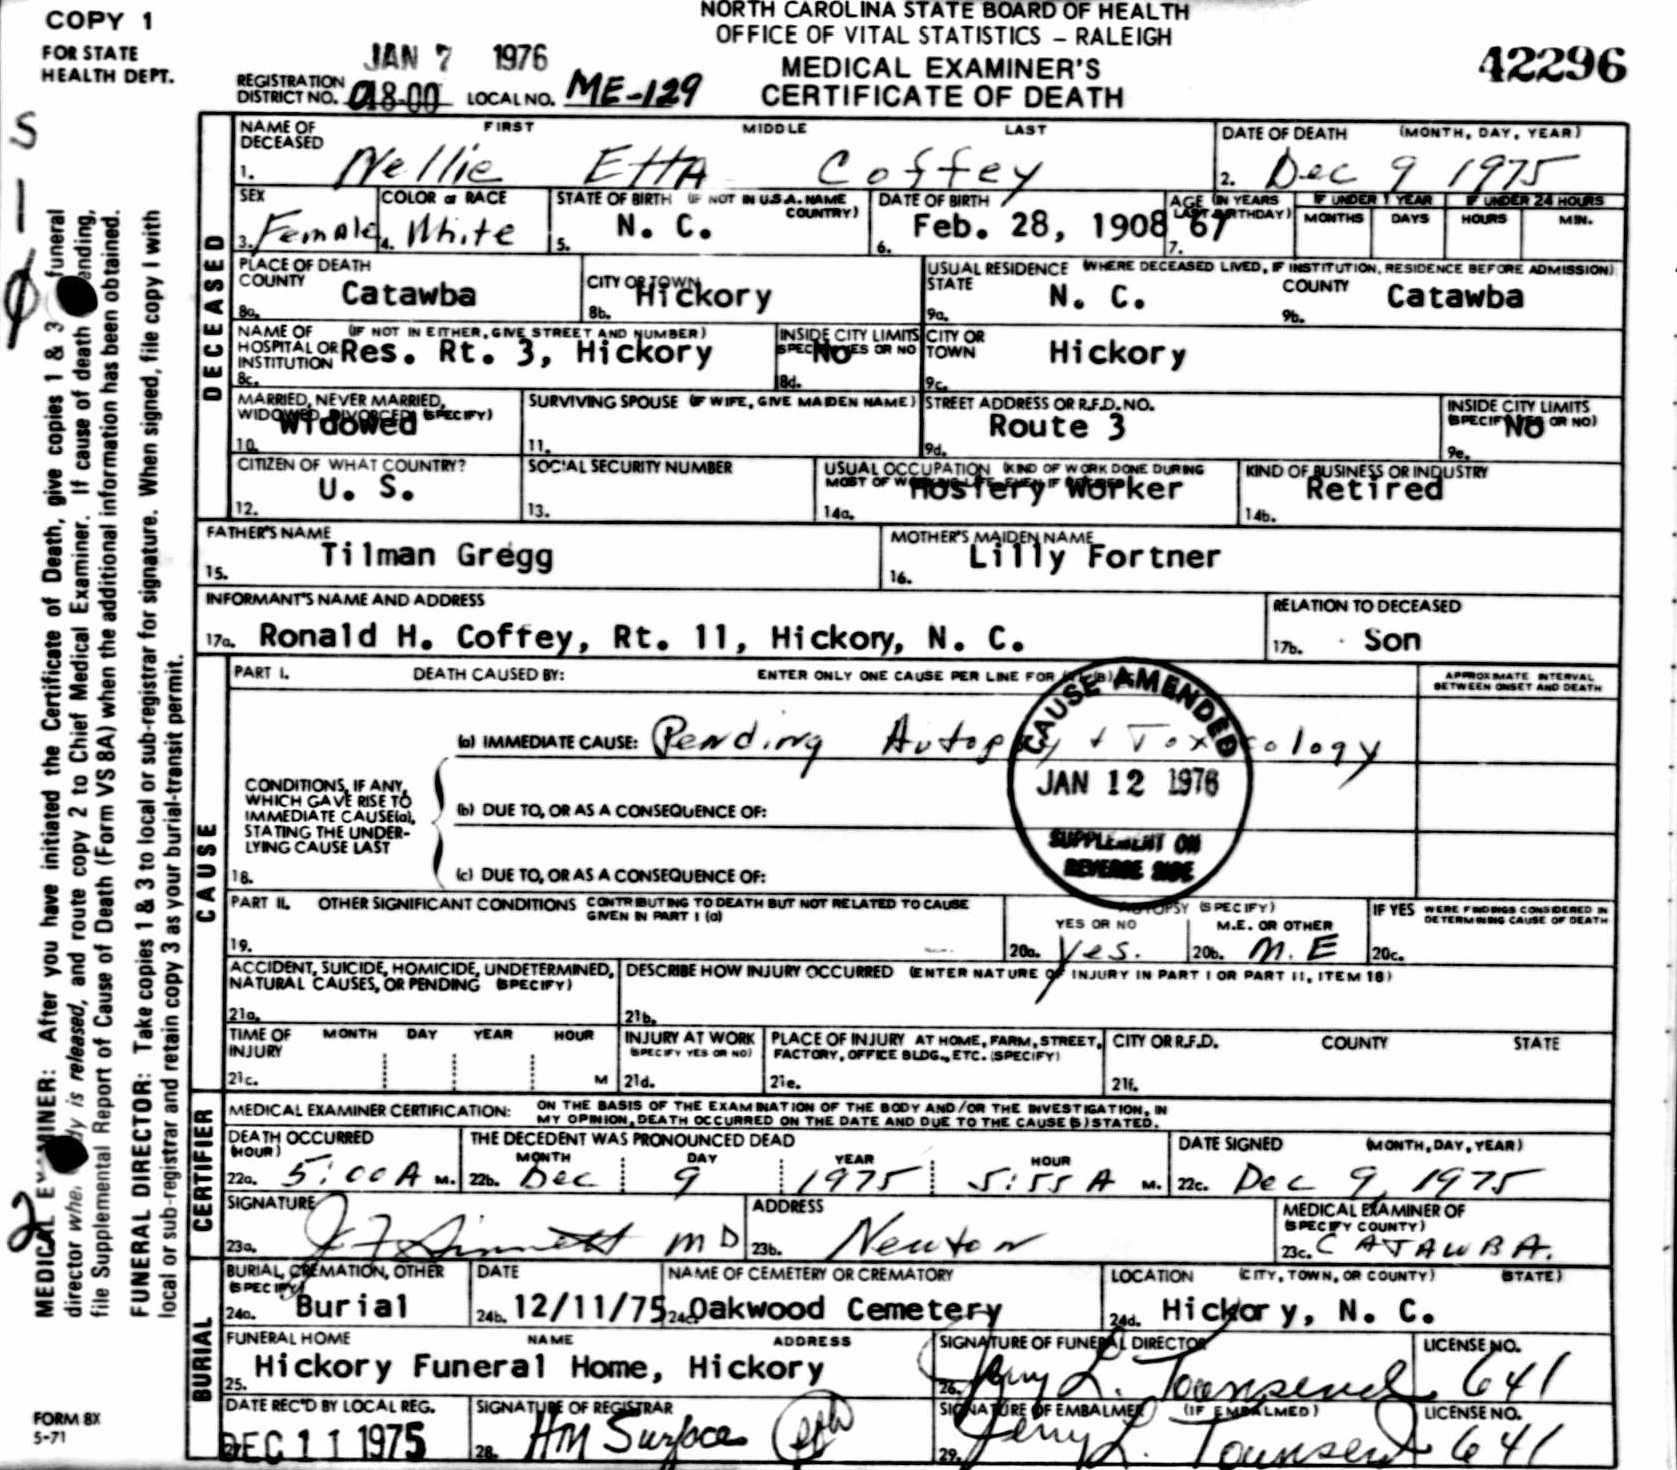 COPY 1
FOR STATE
HEALTH DEPT.
JAN 7 1976
NORTH CAROLINA STATE BOARD OF HEALTH
OFFICE OF VITAL STATISTICS – RALEIGH
MEDICAL EXAMINER'S
CERTIFICATE OF DEATH
42296
REGISTRATION
DISTRICT NO. 018-00 LOCAL NO. ME-129
DECEASED
NAME OF DECEASED FIRST MIDDLE LAST
1. Nellie Etta Coffey
DATE OF DEATH (MONTH, DAY, YEAR)
2. Dec 9 1975
SEX
3. Female
COLOR or RACE
4. White
STATE OF BIRTH (IF NOT IN U.S.A. NAME COUNTRY)
5. N. C.
DATE OF BIRTH
6. Feb. 28, 1908
AGE (IN YEARS LAST BIRTHDAY)
7. 67
IF UNDER 1 YEAR
MONTHS DAYS
IF UNDER 24 HOURS
HOURS MIN.
PLACE OF DEATH
COUNTY
8a. Catawba
CITY OR TOWN
8b. Hickory
USUAL RESIDENCE (WHERE DECEASED LIVED, IF INSTITUTION, RESIDENCE BEFORE ADMISSION)
STATE
9a. N. C.
COUNTY
9b. Catawba
NAME OF HOSPITAL OR INSTITUTION (IF NOT IN EITHER, GIVE STREET AND NUMBER)
8c. Res. Rt. 3, Hickory
INSIDE CITY LIMITS
SPECIFY YES OR NO
8d. No
CITY OR TOWN
9c. Hickory
MARRIED, NEVER MARRIED,
WIDOWED, DIVORCED (SPECIFY)
10. Widowed
SURVIVING SPOUSE (IF WIFE, GIVE MAIDEN NAME)
11.
STREET ADDRESS OR R.F.D. NO.
9d. Route 3
INSIDE CITY LIMITS
(SPECIFY YES OR NO)
9e. No
CITIZEN OF WHAT COUNTRY?
12. U. S.
SOCIAL SECURITY NUMBER
13.
USUAL OCCUPATION (KIND OF WORK DONE DURING
MOST OF WORKING LIFE, EVEN IF RETIRED)
14a. Hosiery Worker
KIND OF BUSINESS OR INDUSTRY
14b. Retired
FATHER'S NAME
15. Tilman Gregg
MOTHER'S MAIDEN NAME
16. Lilly Fortner
INFORMANT'S NAME AND ADDRESS
17a. Ronald H. Coffey, Rt. 11, Hickory, N. C.
RELATION TO DECEASED
17b. Son
CAUSE
PART I. DEATH CAUSED BY: ENTER ONLY ONE CAUSE PER LINE FOR
APPROXIMATE INTERVAL
BETWEEN ONSET AND DEATH
(a) IMMEDIATE CAUSE: Pending Autopsy + Toxicology
CONDITIONS, IF ANY,
WHICH GAVE RISE TO
IMMEDIATE CAUSE(a),
STATING THE UNDER-
LYING CAUSE LAST
(b) DUE TO, OR AS A CONSEQUENCE OF:
18.
(c) DUE TO, OR AS A CONSEQUENCE OF:
CAUSE AMENDED
JAN 12 1976
SUPPLEMENT ON
REVERSE SIDE
PART II. OTHER SIGNIFICANT CONDITIONS CONTRIBUTING TO DEATH BUT NOT RELATED TO CAUSE
GIVEN IN PART I (a)
19.
AUTOPSY (SPECIFY)
YES OR NO
20a. Yes.
M.E. OR OTHER
20b. M.E
IF YES WERE FINDINGS CONSIDERED IN
DETERMINING CAUSE OF DEATH
20c.
ACCIDENT, SUICIDE, HOMICIDE, UNDETERMINED,
NATURAL CAUSES, OR PENDING (SPECIFY)
21a.
DESCRIBE HOW INJURY OCCURRED (ENTER NATURE OF INJURY IN PART I OR PART II, ITEM 18)
21b.
TIME OF INJURY MONTH DAY YEAR HOUR
21c. M
INJURY AT WORK
(SPECIFY YES OR NO)
21d.
PLACE OF INJURY AT HOME, FARM, STREET,
FACTORY, OFFICE BLDG., ETC. (SPECIFY)
21e.
CITY OR R.F.D. COUNTY STATE
21f.
CERTIFIER
MEDICAL EXAMINER CERTIFICATION: ON THE BASIS OF THE EXAMINATION OF THE BODY AND/OR THE INVESTIGATION, IN
MY OPINION, DEATH OCCURRED ON THE DATE AND DUE TO THE CAUSE(S) STATED.
DEATH OCCURRED
(HOUR)
22a. 5:00 A M.
THE DECEDENT WAS PRONOUNCED DEAD
MONTH DAY YEAR HOUR
22b. Dec 9 1975 5:55 A M.
DATE SIGNED (MONTH, DAY, YEAR)
22c. Dec 9, 1975
SIGNATURE
23a. MD
ADDRESS
23b. Newton
MEDICAL EXAMINER OF
(SPECIFY COUNTY)
23c. CATAWBA.
BURIAL
BURIAL, CREMATION, OTHER
(SPECIFY)
24a. Burial
DATE
24b. 12/11/75
NAME OF CEMETERY OR CREMATORY
24c. Oakwood Cemetery
LOCATION (CITY, TOWN, OR COUNTY) (STATE)
24d. Hickory, N. C.
FUNERAL HOME NAME ADDRESS
25. Hickory Funeral Home, Hickory
SIGNATURE OF FUNERAL DIRECTOR
26. Jerry L. Townsend
LICENSE NO.
641
DATE REC'D BY LOCAL REG.
27. DEC 11 1975
SIGNATURE OF REGISTRAR
28. HM Surface
SIGNATURE OF EMBALMER (IF EMBALMED)
29. Jerry L. Townsend
LICENSE NO.
641
FORM 8X
5-71
MEDICAL EXAMINER: After you have initiated the Certificate of Death, give copies 1 & 3 funeral
director when body is released, and route copy 2 to Chief Medical Examiner. If cause of death pending,
file Supplemental Report of Cause of Death (Form VS 8A) when the additional information has been obtained.
FUNERAL DIRECTOR: Take copies 1 & 3 to local or sub-registrar for signature. When signed, file copy I with
local or sub-registrar and retain copy 3 as your burial-transit permit.
S
2